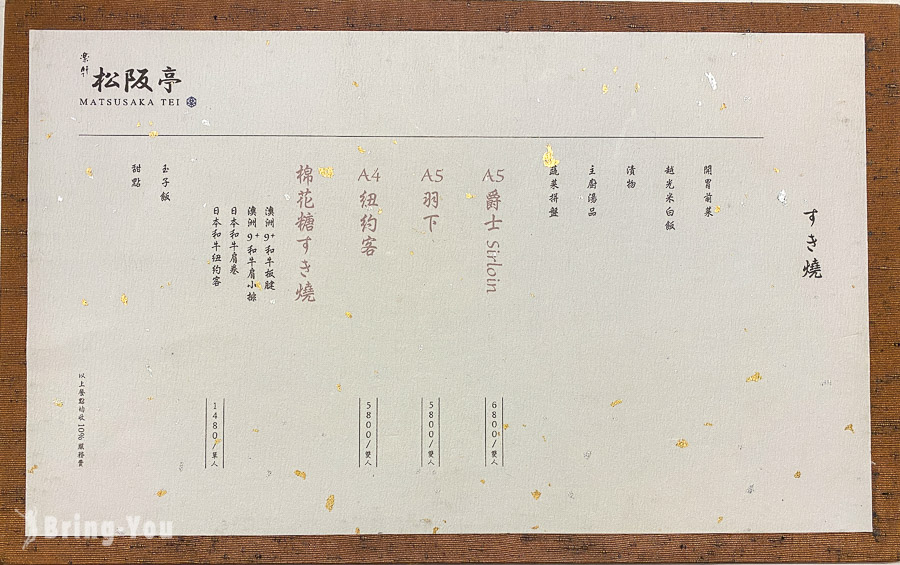 樂軒
松阪亭
MATSUSAKA TEI
すき燒
開胃前菜
越光米白飯
漬物
主廚湯品
蔬菜拼盤
A5爵士 Sirloin
6800/雙人
A5羽下
5800/雙人
A4紐約客
5800/雙人
棉花糖すき燒
澳洲9+和牛板腱
澳洲9+和牛肩小排
日本和牛肩卷
日本和牛紐約客
1480/單人
玉子飯
甜點
以上餐點均收10%服務費
Bring-You